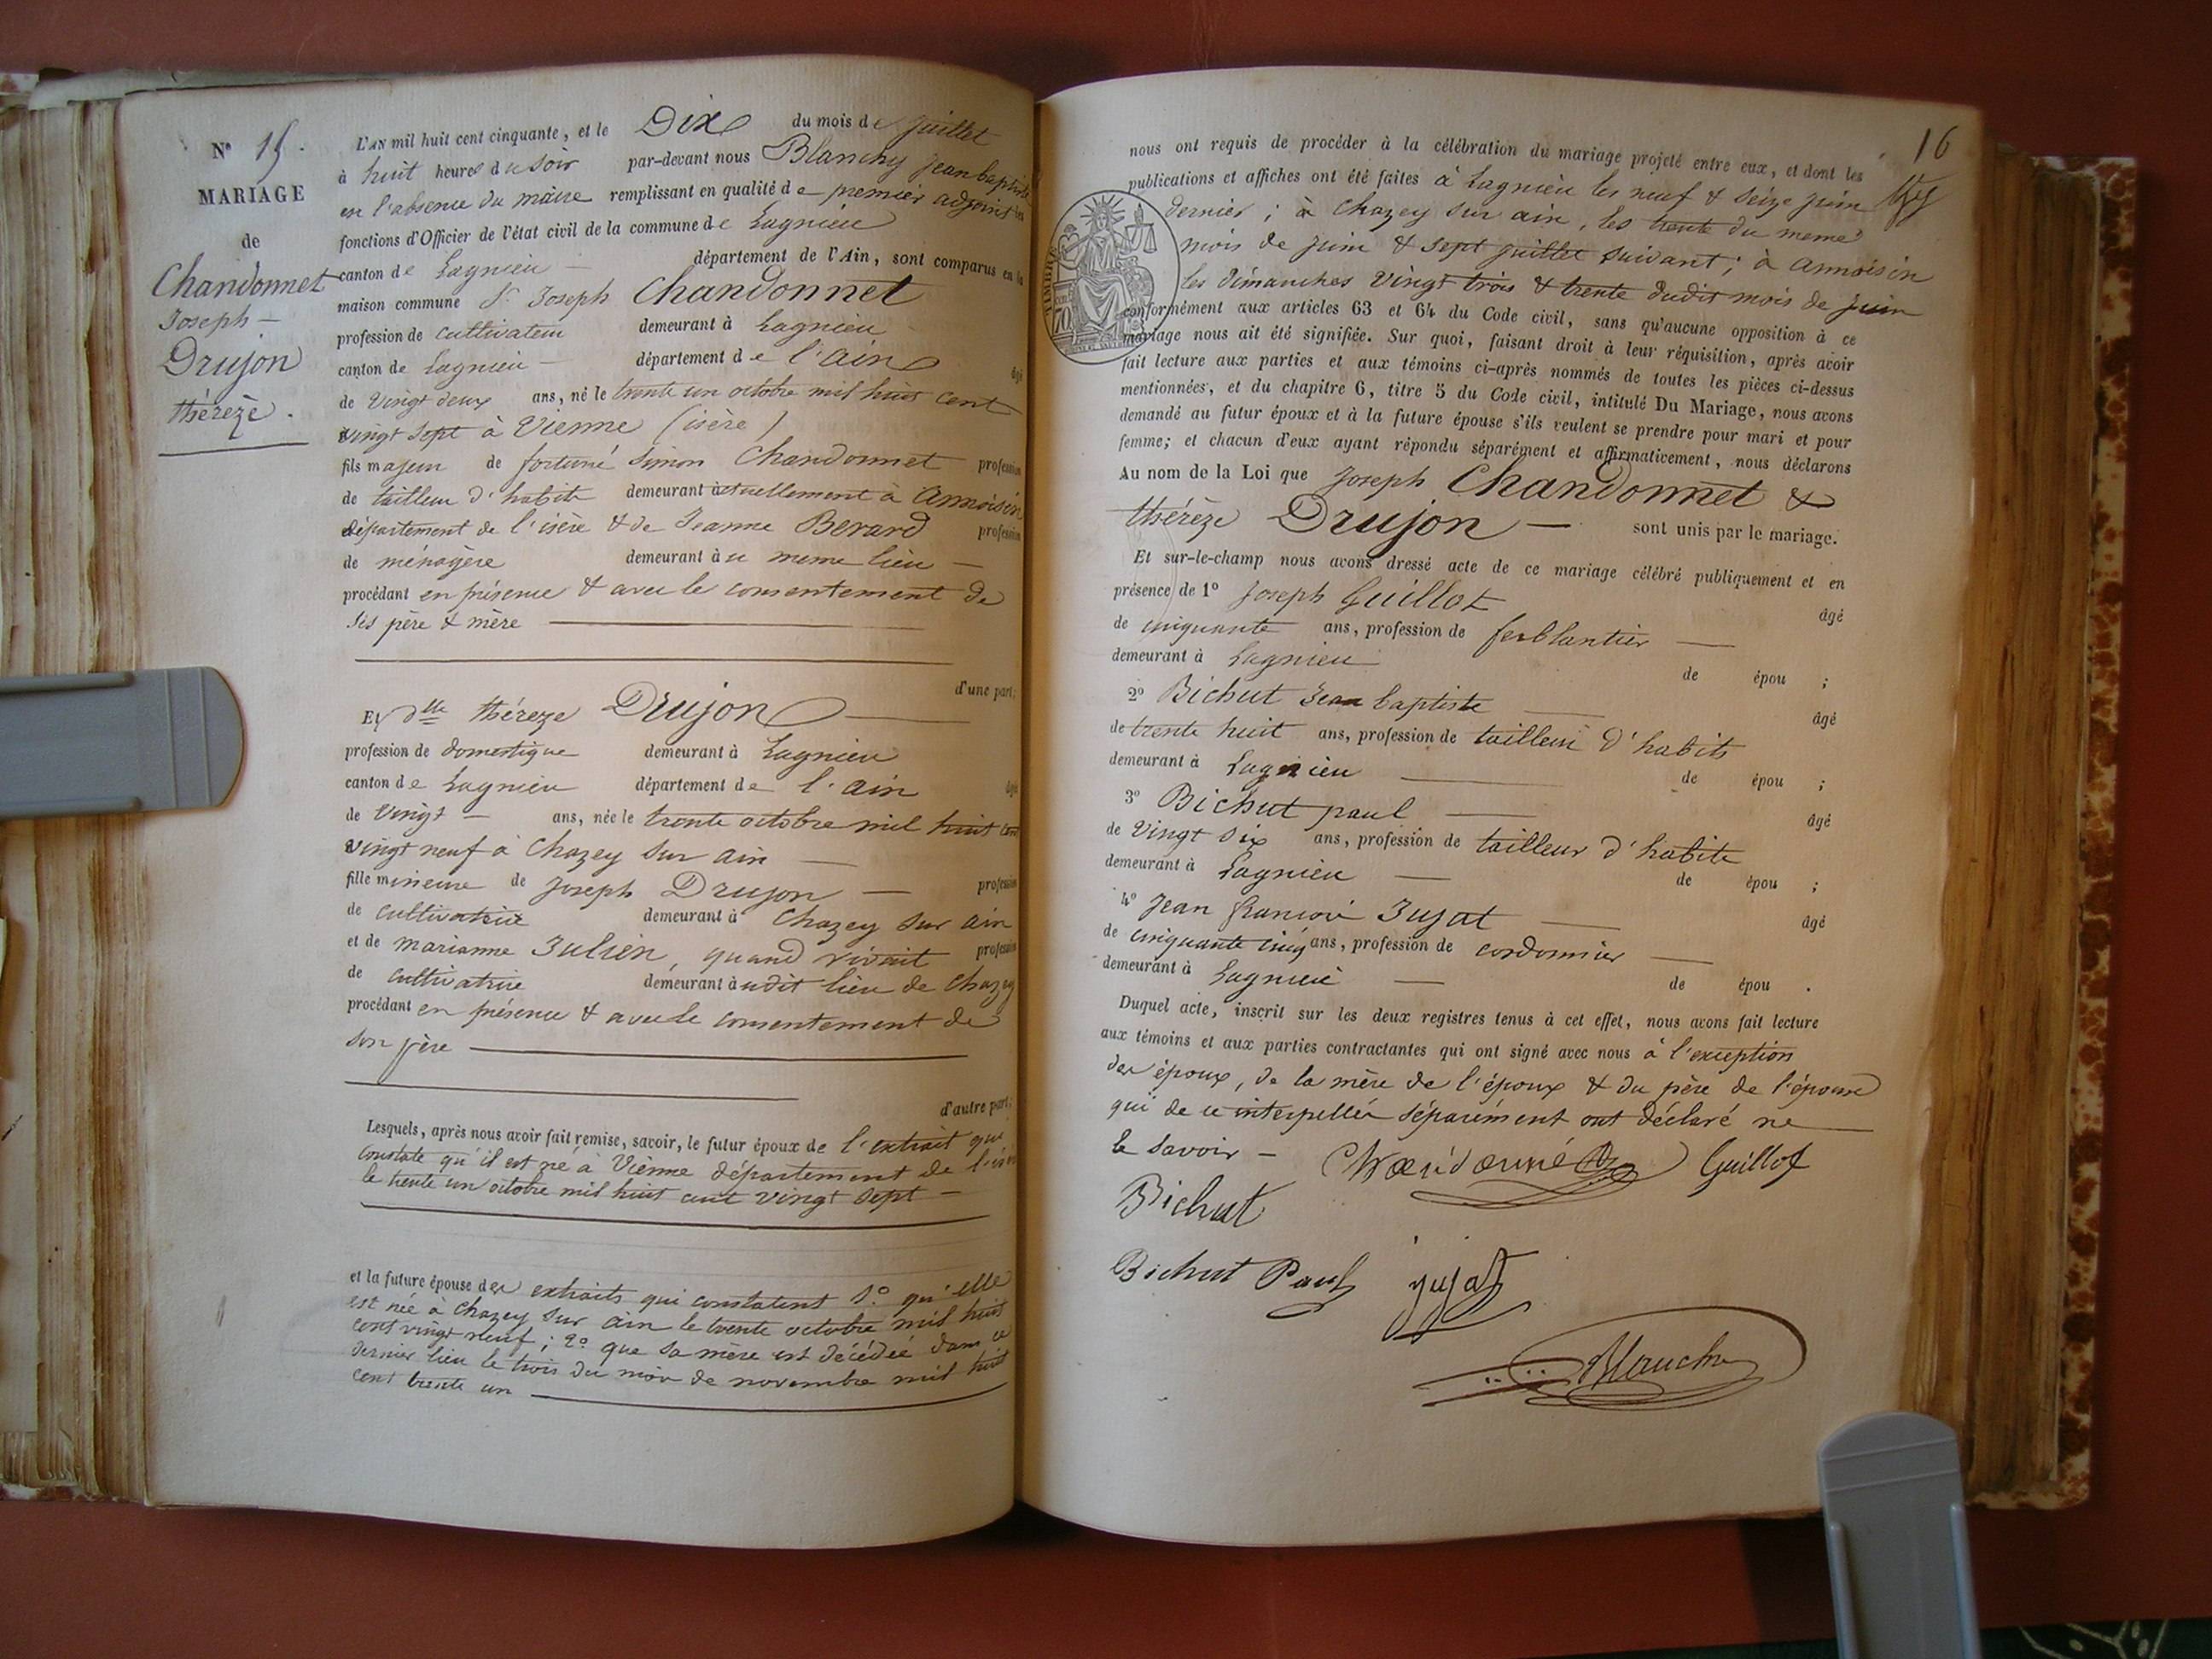 N° 15.
MARIAGE
de
Chandonnet
Joseph —
Drujon
thérèze.
L'AN mil huit cent cinquante, et le Dix du mois de juillet
à huit heures du soir par-devant nous Blanchy jean baptiste
en l'absence du maire remplissant en qualité de premier adjoint les
fonctions d'Officier de l'état civil de la commune de Lagnieu
canton de Lagnieu — département de l'Ain, sont comparus en la
maison commune Sr Joseph Chandonnet
profession de cultivateur demeurant à Lagnieu
canton de Lagnieu — département de l'ain âgé
de vingt deux ans, né le trente un octobre mil huit cent
vingt sept à Vienne (isère)
fils majeur de fortuné simon Chandonnet profession
de tailleur d'habits demeurant actuellement à Annoisin
département de l'isère & de Jeanne Berard profession
de ménagère demeurant à ce meme lieu —
procédant en présence & avec le consentement de
ses père & mère
d'une part;
Et dlle thérèze Drujon
profession de domestique demeurant à Lagnieu
canton de Lagnieu département de l'ain âgée
de vingt — ans, née le trente octobre mil huit cent
vingt neuf à Chazey sur ain —
fille mineure de Joseph Drujon — profession
de cultivateur demeurant à Chazey sur ain
et de marianne Julien, quand vivait profession
de cultivatrice demeurant audit lieu de Chazey
procédant en présence & avec le consentement de
son père
d'autre part;
Lesquels, après nous avoir fait remise, savoir, le futur époux de l'extrait qui
constate qu'il est né à Vienne département de l'isère
le trente un octobre mil huit cent vingt sept —
et la future épouse des extraits qui constatent 1.° qu'elle
est née à Chazey sur ain le trente octobre mil huit
cent vingt neuf; 2.° que sa mère est décédée dans ce
dernier lieu le trois du mois de novembre mil huit
cent trente un
16
nous ont requis de procéder à la célébration du mariage projeté entre eux, et dont les
publications et affiches ont été faites à Lagnieu les neuf & seize juin
dernier; à Chazey sur ain, les trente du meme
mois de juin & sept juillet suivant; à annoisin
les dimanches vingt trois & trente dudit mois de juin
TIMBRE
70
conformément aux articles 63 et 64 du Code civil, sans qu'aucune opposition à ce
mariage nous ait été signifiée. Sur quoi, faisant droit à leur réquisition, après avoir
fait lecture aux parties et aux témoins ci-après nommés de toutes les pièces ci-dessus
mentionnées, et du chapitre 6, titre 5 du Code civil, intitulé Du Mariage, nous avons
demandé au futur époux et à la future épouse s'ils veulent se prendre pour mari et pour
femme; et chacun d'eux ayant répondu séparément et affirmativement, nous déclarons
Au nom de la Loi que Joseph Chandonnet &
thérèze Drujon — sont unis par le mariage.
Et sur-le-champ nous avons dressé acte de ce mariage célébré publiquement et en
présence de 1° Joseph Guillot âgé
de cinquante ans, profession de ferblantier
demeurant à Lagnieu de épou ;
2° Bichut Jean baptiste âgé
de trente huit ans, profession de tailleur d'habits
demeurant à Lagnieu de épou ;
3° Bichut paul âgé
de vingt six ans, profession de tailleur d'habits
demeurant à Lagnieu de épou ;
4° Jean françois Jujat âgé
de cinquante cinq ans, profession de cordonnier
demeurant à Lagnieu de épou .
Duquel acte, inscrit sur les deux registres tenus à cet effet, nous avons fait lecture
aux témoins et aux parties contractantes qui ont signé avec nous à l'exception
des époux, de la mère de l'époux & du père de l'épouse
qui de ce interpellés séparément ont déclaré ne
le savoir —
Guillot
Bichut
Bichut Paul jujat